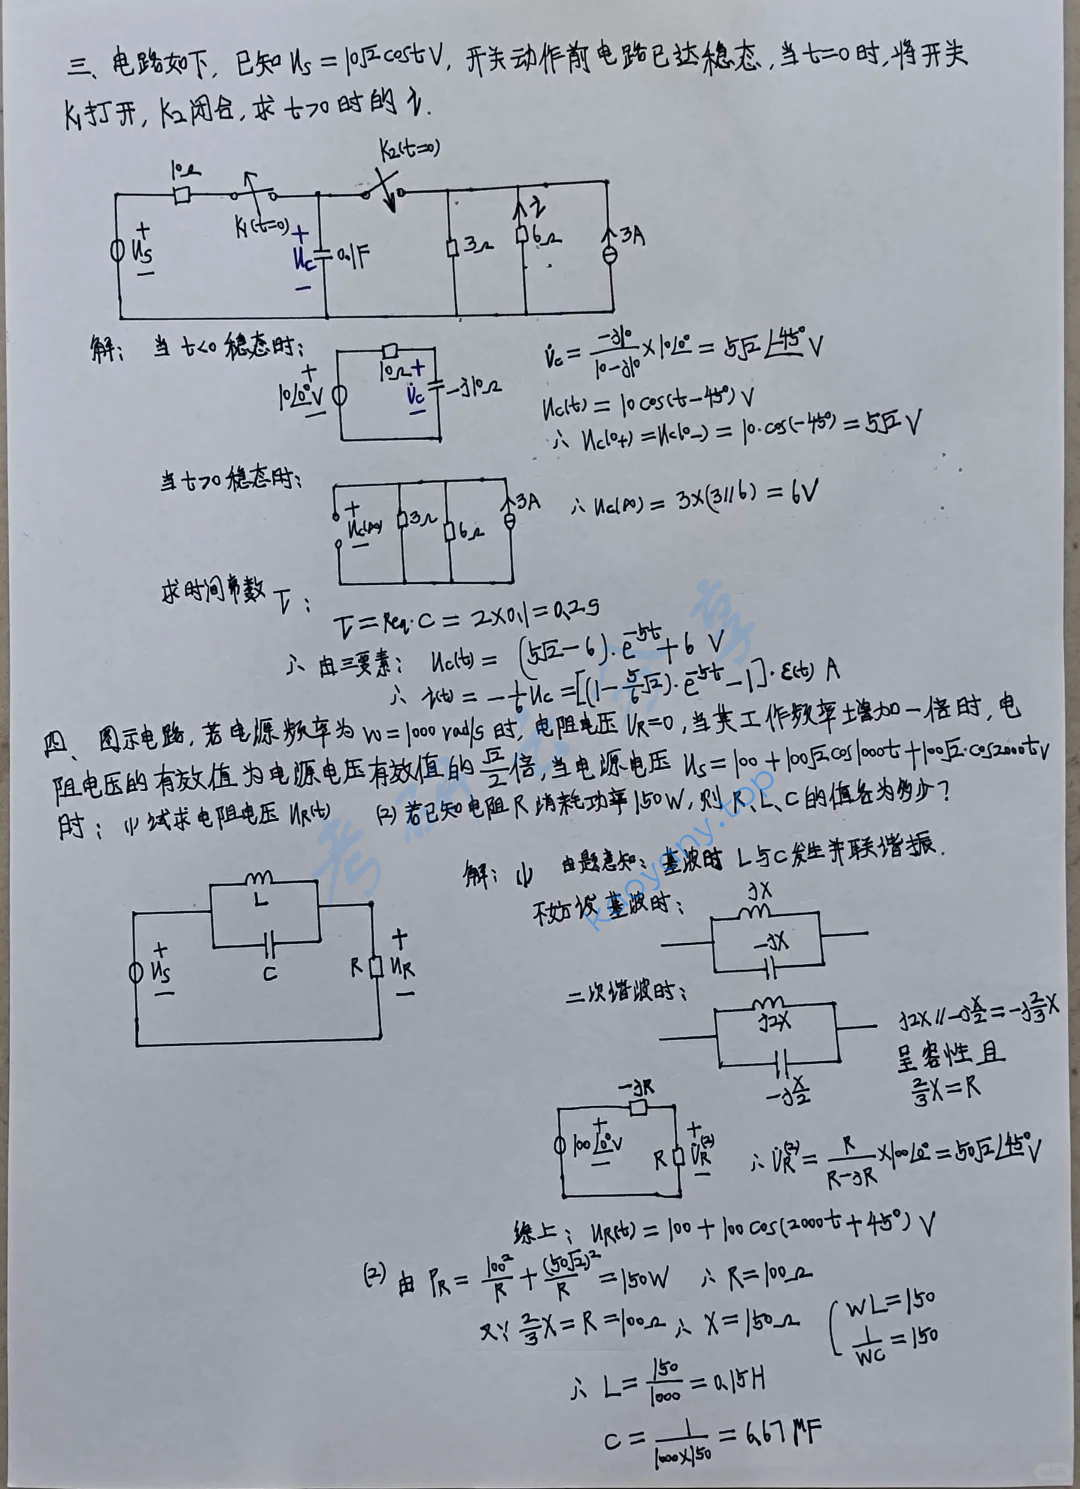 三、电路如下, 已知 Us = 10√2 cost V, 开关动作前电路已达稳态, 当t=0时, 将开关
K₁打开, K₂闭合, 求 t>0时的 i.
10Ω
K₂(t=0)
K₁(t=0)
+
Us
−
+
Uc
−
0.1F
3Ω
i
6Ω
3A
解: 当 t<0 稳态时:
10∠0°V
+
−
10Ω
+
U̇c
−
-j10Ω
U̇c = -j10/(10-j10) × 10∠0° = 5√2 ∠-45° V
Uc(t) = 10cos(t-45°) V
∴ Uc(0+) = Uc(0-) = 10·cos(-45°) = 5√2 V
当t>0稳态时:
+
Uc(∞)
−
3Ω
6Ω
3A
∴ Uc(∞) = 3×(3//6) = 6V
求时间常数 τ:
τ = Req·C = 2×0.1 = 0.2s
∴ 由三要素: Uc(t) = (5√2-6)·e^-5t + 6 V
∴ i(t) = -1/6 Uc = [(1-5/6√2)·e^-5t - 1]·ε(t) A
四、图示电路, 若电源频率为 w=1000 rad/s 时, 电阻电压 UR=0, 当其工作频率增加一倍时, 电
阻电压的有效值为电源电压有效值的 √2/2 倍, 当电源电压 Us = 100 + 100√2 cos1000t + 100√2·cos2000t V
时: (1) 试求电阻电压 UR(t) (2) 若已知电阻R消耗功率150W, 则 R、L、C的值各为多少?
L
C
+
Us
−
R
+
UR
−
解: (1) 由题意知: 基波时 L与C发生并联谐振.
不妨设基波时:
jX
-jX
二次谐波时:
j2X
-jX/2
j2X // -jX/2 = -j2/3X
呈容性且
2/3X = R
-jR
+
100∠0°V
−
R
+
U̇R(2)
−
∴ U̇R(2) = R/(R-jR) × 100∠0° = 50√2 ∠45° V
综上: UR(t) = 100 + 100cos(2000t+45°) V
(2) 由 PR = 100²/R + (50√2)²/R = 150W ∴ R = 100Ω
又∵ 2/3X = R = 100Ω ∴ X = 150Ω { WL = 150
1/WC = 150
∴ L = 150/1000 = 0.15H
C = 1/(1000×150) = 6.67MF
考研云分享
kaoyany.top